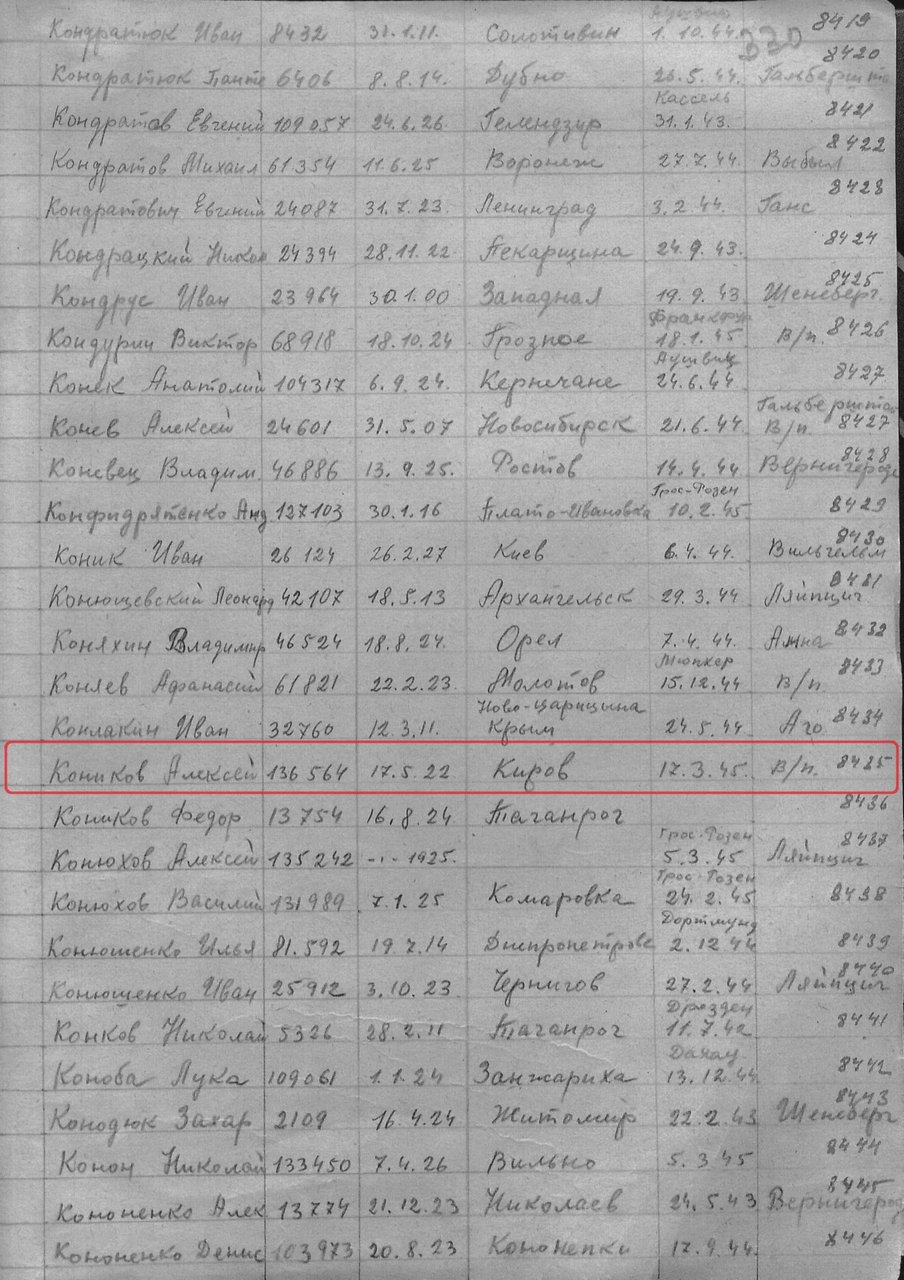 Кондратюк Иван 8432 31.1.11. Солотивин 1.10.44. 330 8419
8420
Кондратюк Панте 6406 8.8.14. Дубно 26.5.44. Гальбершта
Кассель 8421
Кондратов Евгений 109057 24.6.26 Геленджир 31.1.43.
8422
Кондратов Михаил 61354 11.6.25 Воронеж 27.7.44 Выбыл
8423
Кондратович Евгений 24087 31.7.23. Ленинград 3.2.44. Ганс
8424
Кондрацкий Никол 24394 28.11.22. Пекарщина 24.9.43.
8425
Кондрус Иван 23964 30.1.00 Западная 19.9.43 Шенеберг.
Франкфур
Кондурин Виктор 68918 18.10.24 Грозное 18.1.45 В/п. 8426
Аушвиц 8427
Конек Анатолий 104317 6.9.24. Кернечане 24.6.44.
Гальберштат
Конев Алексей 24601 31.5.07 Новосибирск 21.6.44. В/п. 8427
8428
Коневец Владим. 46886 13.9.25. Ростов 14.4.44 Вернигероде
Грос-Розен 8429
Конфидрятенко Анд 127103 30.1.16 Плато-Ивановка 10.2.45
8430
Коник Иван 26124 26.2.27 Киев 6.4.44. Вильгельм
8431
Конющевский Леонард 42107 18.5.13 Архангельск 29.3.44 Ляйпциг
Коняхин Владимир 46524 18.8.24. Орел 7.4.44. Анна 8432
8433
Коняев Афанасий 61821 22.2.23. Молотов 15.12.44 В/п.
Ново-Царицына
Конлакин Иван 32760 12.3.11. Крым 24.5.44 Аго 8434
Коников Алексей 136564 17.5.22 Киров 17.3.45. В/п. 8435
8436
Коников Федор 13754 16.8.24 Таганрог
Грос-Розен 8437
Конюхов Алексей 135242 -.-.1925. 5.3.45 Ляйпциг
Грос-Розен
Конюхов Василий 131989 7.1.25 Комаровка 24.2.45 8438
Дортмунд
Конюшенко Илья 81.592 19.7.14 Днипропетровс 2.12.44 8439
8440
Конюшенко Иван 25912 3.10.23 Чернигов 27.2.44 Ляйпциг
Дрезден
Конков Николай 5326 28.2.11 Таганрог 11.7.42 8441
Дахау
Коноба Лука 109061 1.1.24 Занжариха 13.12.44. 8442
8443
Конодюк Захар 2109 16.4.24 Житомир 22.2.43 Шенеберг
8444
Конон Николай 133450 7.4.26 Вильно 5.3.45
8445
Кононенко Алек 13774 21.12.23 Николаев 24.5.43 Вернигерод
Кононенко Денис 103973 20.8.23 Кононепки 17.9.44. 8446